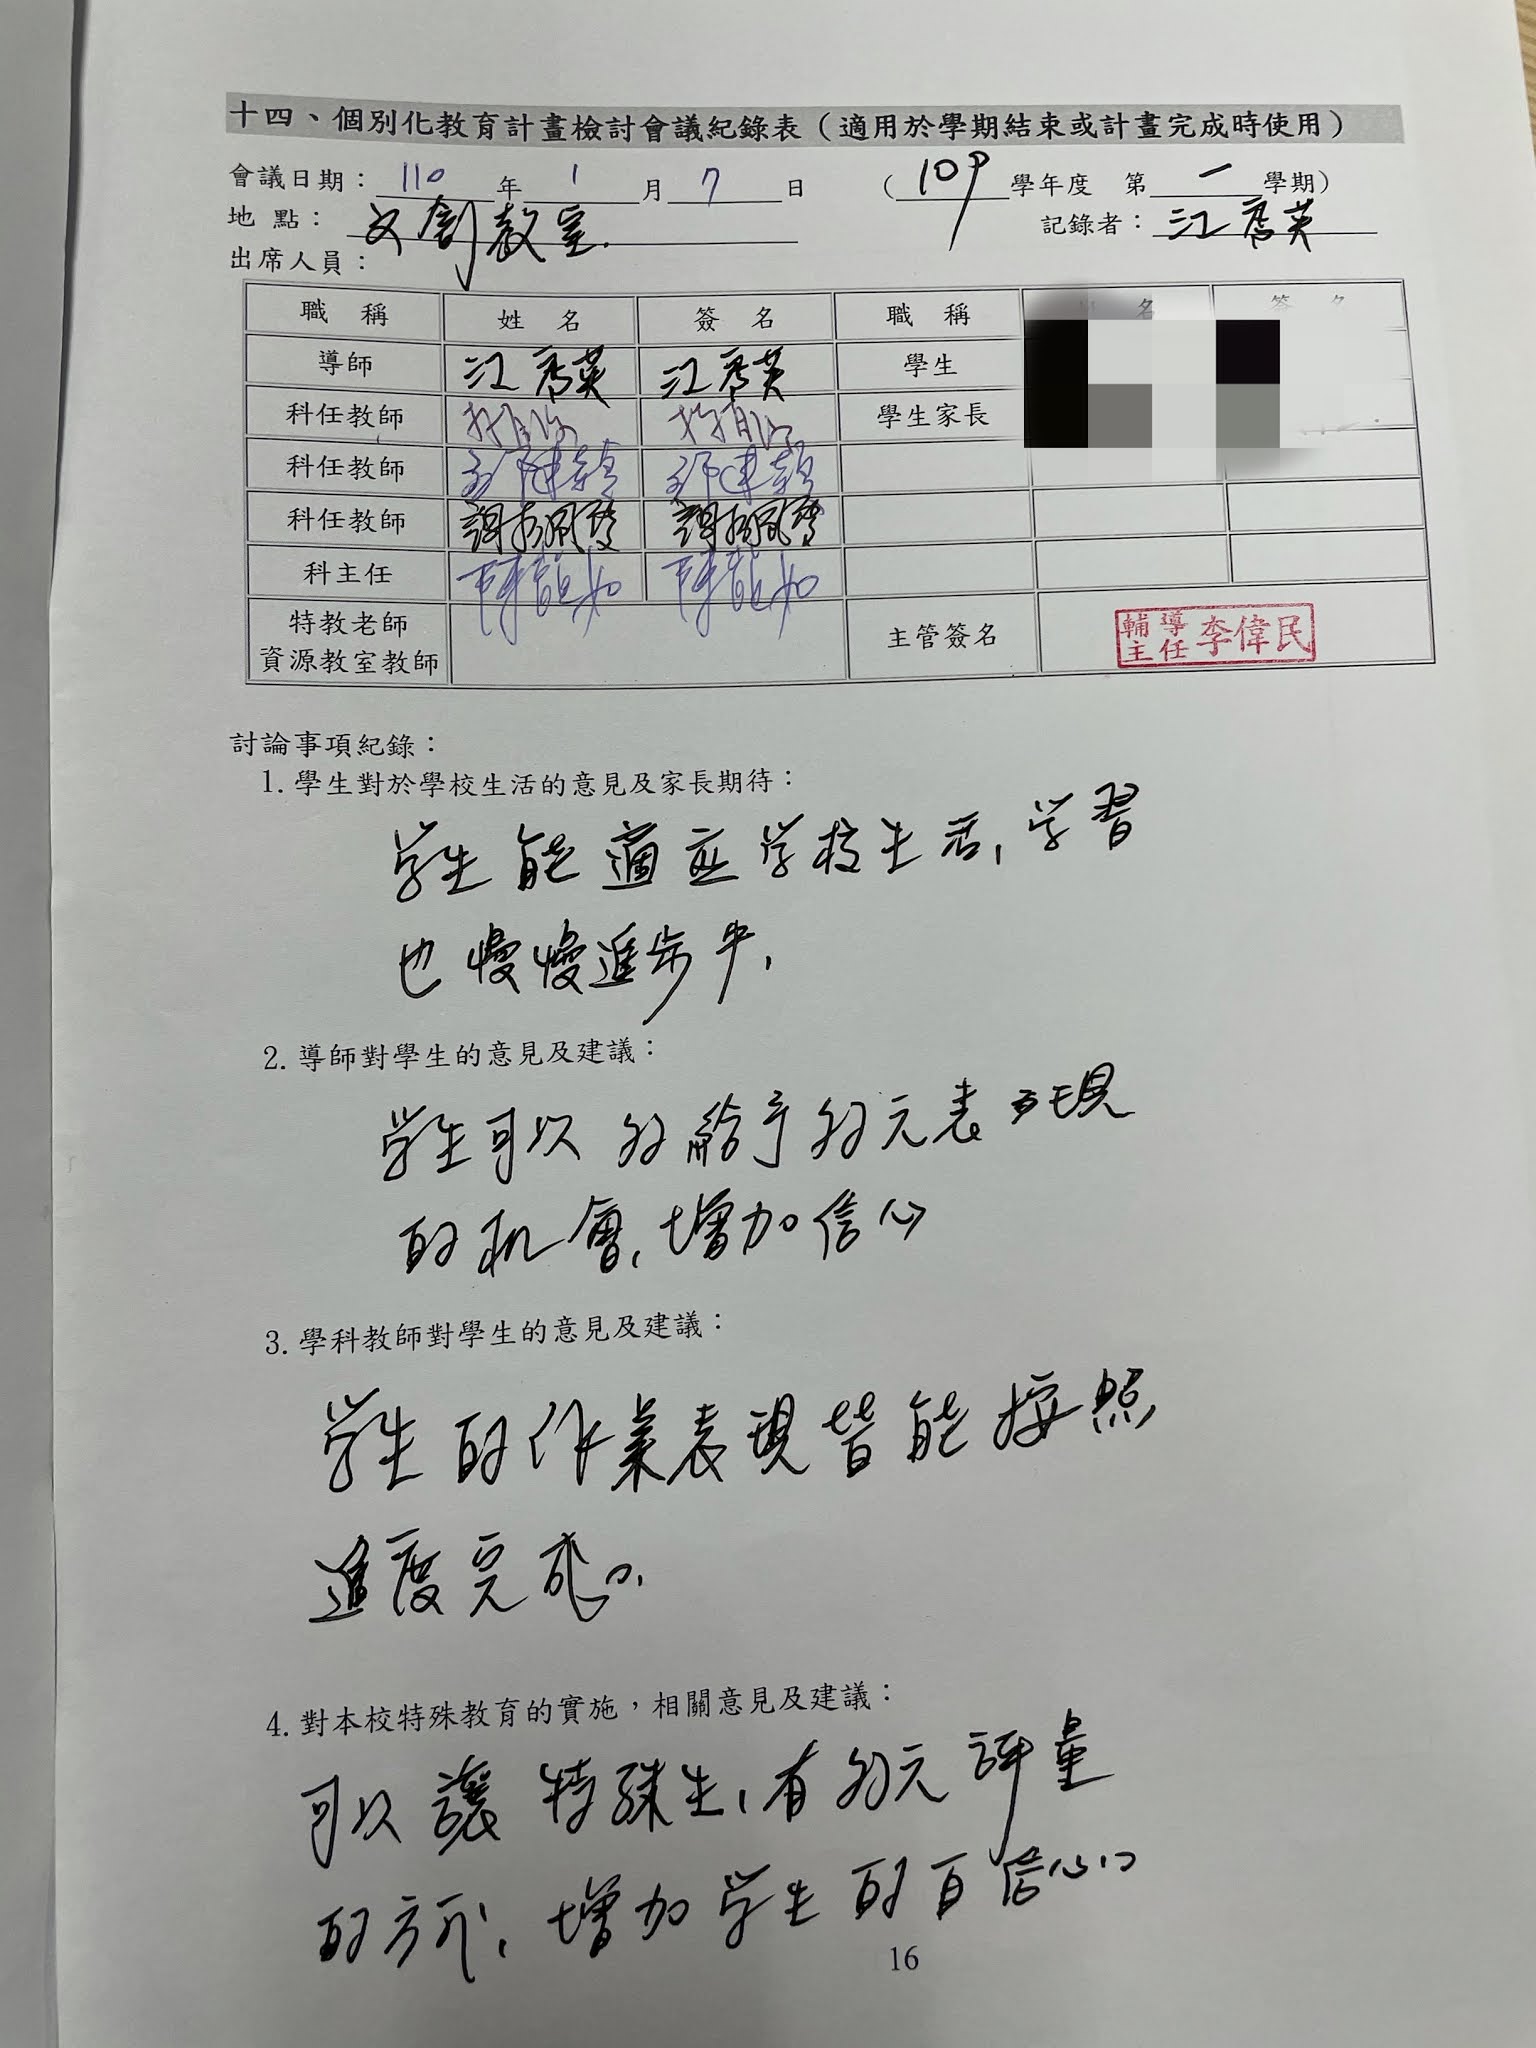 十四、個別化教育計畫檢討會議紀錄表（適用於學期結束或計畫完成時使用）
會議日期：110年1月7日 （109學年度 第一學期）
地點：文創教室. 記錄者：江秀英
出席人員：
職稱 姓名 簽名 職稱 名 簽名
導師 江秀英 江秀英 學生
科任教師 學生家長
科任教師
科任教師
科主任 陳
特教老師
資源教室教師 主管簽名 輔導主任 李偉民
討論事項紀錄：
1. 學生對於學校生活的意見及家長期待：
学生能適应学校生活,学習
也慢慢進步中,
2. 導師對學生的意見及建議：
学生可以多給予多元表現
的机會,增加信心
3. 學科教師對學生的意見及建議：
学生的作業表現皆能按照
進度完成。
4. 對本校特殊教育的實施，相關意見及建議：
可以讓特殊生,有多元評量
的方式,增加学生的自信心。
16